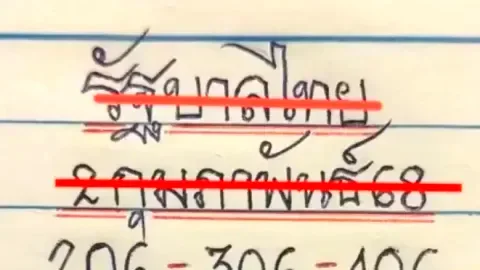 รัฐบาลไทย
2กุมภาพันธ์68
206-306-406